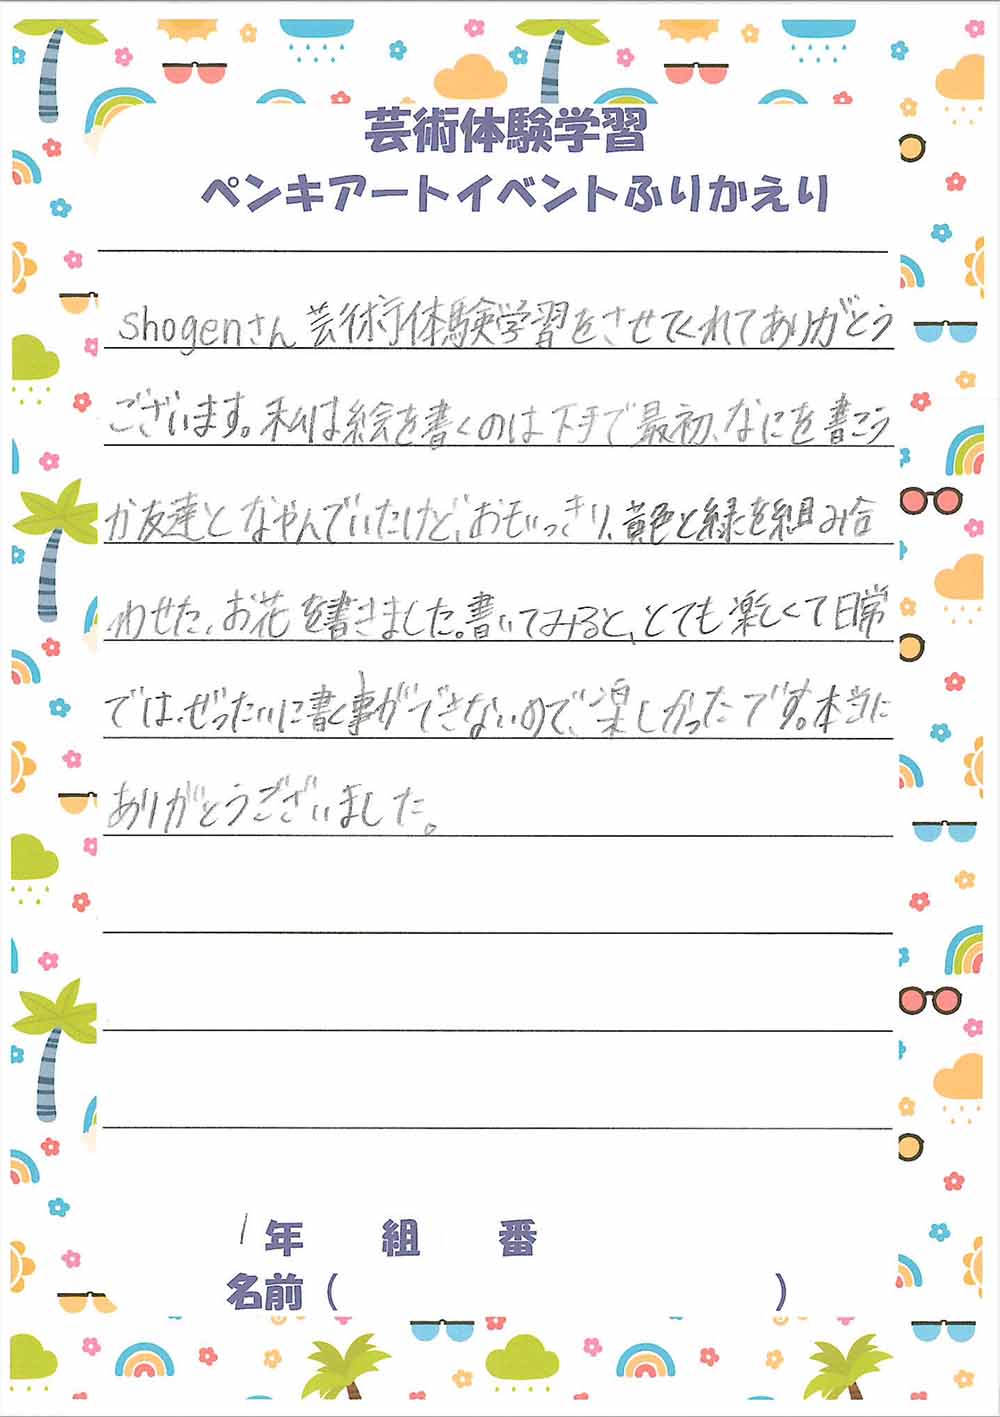 芸術体験学習
ペンキアートイベントふりかえり
shogenさん芸術体験学習をさせてくれてありがとう
ございます。私は絵を書くのは下手で最初、なにを書こう
か友達となやんでいたけど、おもいっきり、黄色と緑を組み合
わせた、お花を書きました。書いてみると、とても楽しくて日常
では、ぜったいに書く事ができないので、楽しかったです。本当に
ありがとうございました。
1年 組 番
名前 ( )